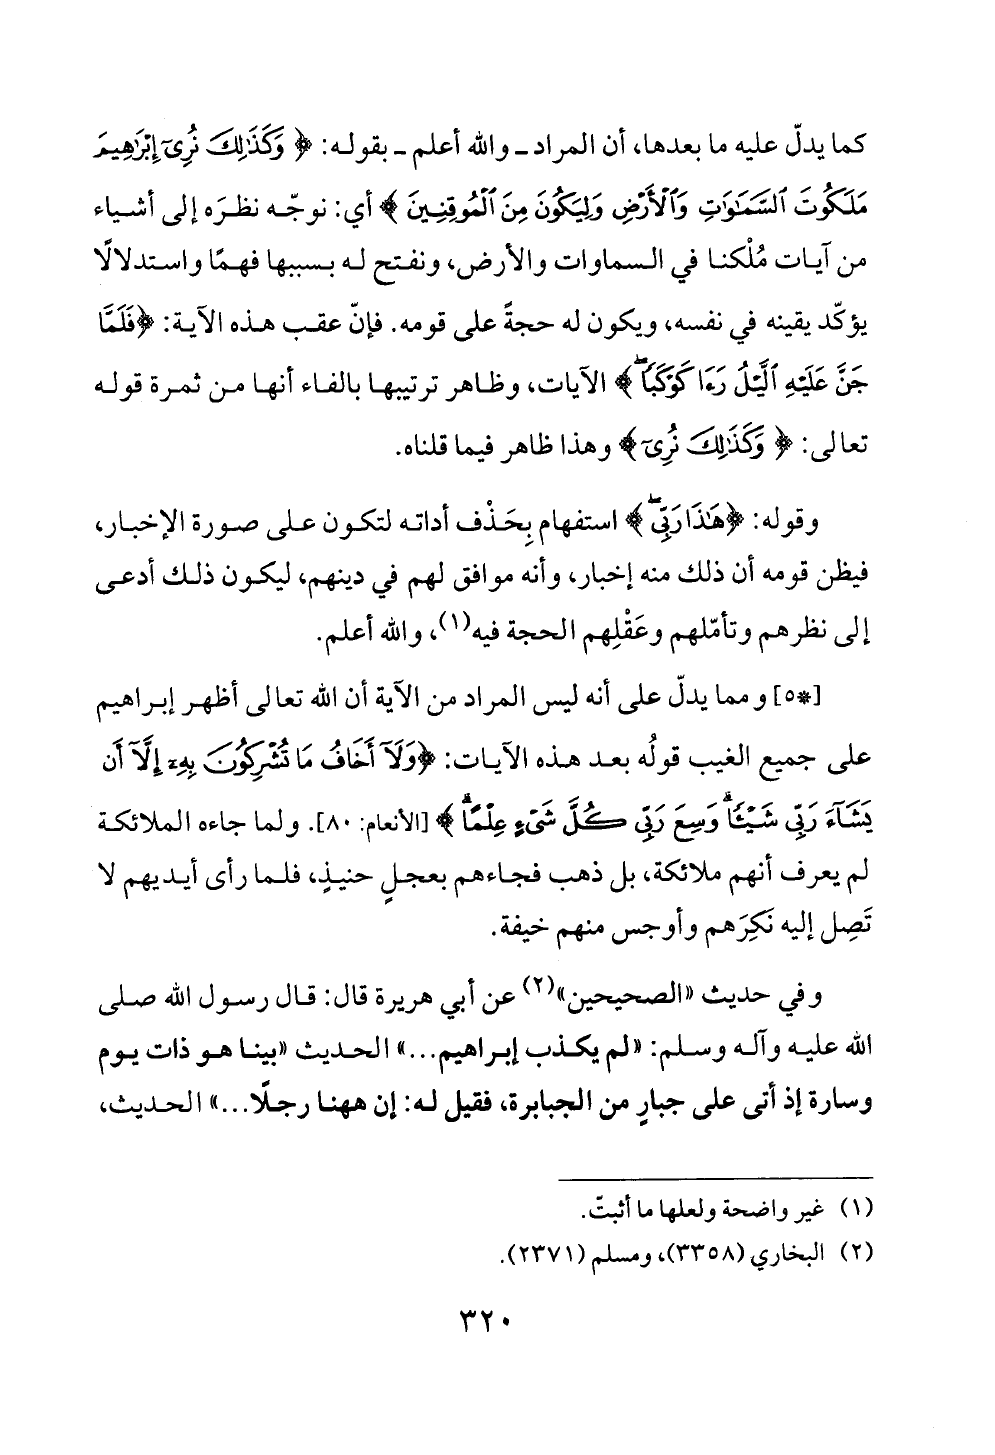 كما يدلّ عليه ما بعدها، أن المراد ـ والله أعلم ـ بقوله: ﴿ وَكَذَٰلِكَ نُرِيٓ إِبْرَٰهِيمَ
مَلَكُوتَ ٱلسَّمَٰوَٰتِ وَٱلْأَرْضِ وَلِيَكُونَ مِنَ ٱلْمُوقِنِينَ ﴾ أي: نوجّه نظرَه إلى أشياء
من آيات مُلْكنا في السماوات والأرض، ونفتح له بسببها فهمًا واستدلالًا
يؤكّد يقينه في نفسه، ويكون له حجةً على قومه. فإنّ عقب هذه الآية: ﴿فَلَمَّا
جَنَّ عَلَيْهِ ٱلَّيْلُ رَءَا كَوْكَبًاۖ﴾ الآيات، وظاهر ترتيبها بالفاء أنها من ثمرة قوله
تعالى: ﴿ وَكَذَٰلِكَ نُرِيٓ﴾ وهذا ظاهر فيما قلناه.
وقوله: ﴿هَٰذَا رَبِّيۖ﴾ استفهام بِحَذْف أداته لتكون على صورة الإخبار،
فيظن قومه أن ذلك منه إخبار، وأنه موافق لهم في دينهم، ليكون ذلك أدعى
إلى نظرهم وتأمّلهم وعَقْلِهم الحجة فيه(١)، والله أعلم.
[*٥] ومما يدلّ على أنه ليس المراد من الآية أن الله تعالى أظهر إبراهيم
على جميع الغيب قولُه بعد هذه الآيات: ﴿وَلَآ أَخَافُ مَا تُشْرِكُونَ بِهِۦٓ إِلَّآ أَن
يَشَآءَ رَبِّي شَيْـًٔاۗ وَسِعَ رَبِّي كُلَّ شَيْءٍ عِلْمًاۗ﴾ [الأنعام: ٨٠]. ولما جاءه الملائكة
لم يعرف أنهم ملائكة، بل ذهب فجاءهم بعجلٍ حنيذٍ، فلما رأى أيديهم لا
تَصِل إليه نَكِرَهم وأوجس منهم خيفة.
وفي حديث «الصحيحين»(٢) عن أبي هريرة قال: قال رسول الله صلى
الله عليه وآله وسلم: «لم يكذب إبراهيم...» الحديث «بينا هو ذات يوم
وسارة إذ أتى على جبارٍ من الجبابرة، فقيل له: إن ههنا رجلًا...» الحديث،
(١) غير واضحة ولعلها ما أثبتّ.
(٢) البخاري (٣٣٥٨)، ومسلم (٢٣٧١).
٣٢٠